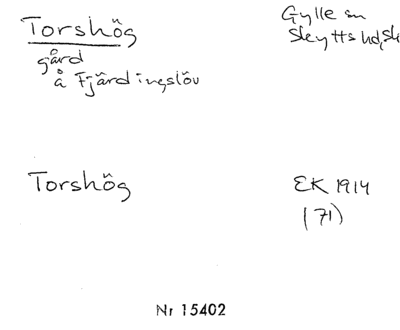 Torshög
gård
å Fjärdingslöv
Gylle sn
Skytts hd, Sk
Torshög
EK 1914
(71)
Nr 15402